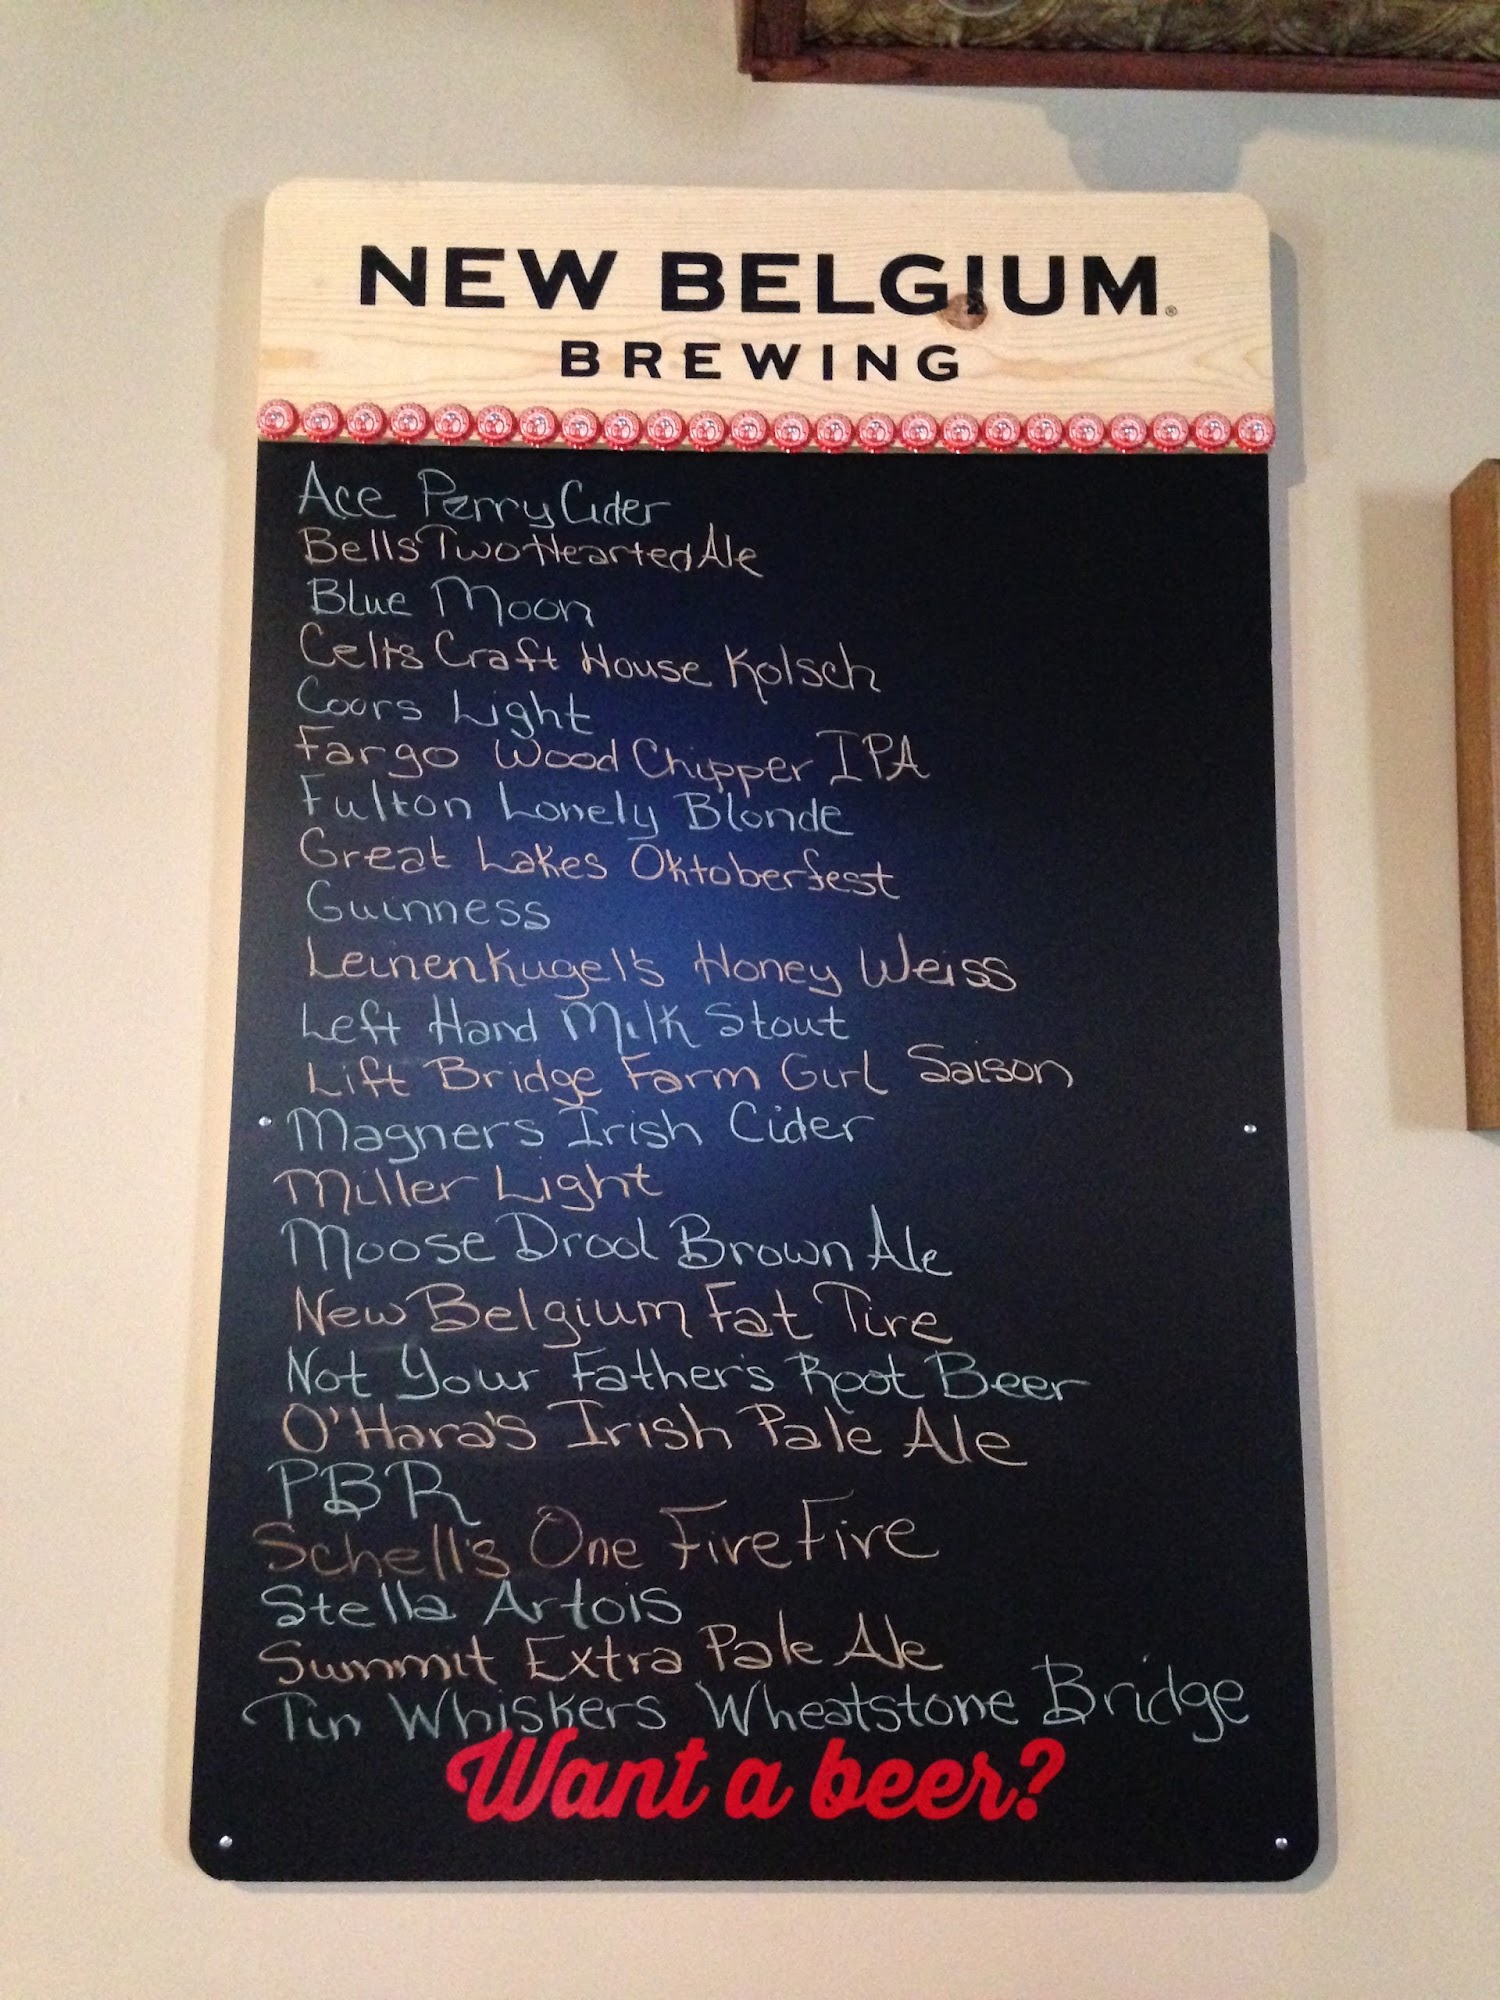 NEW BELGIUM®
BREWING
Ace Perry Cider
Bells Two Hearted Ale
Blue Moon
Celts Craft House Kolsch
Coors Light
Fargo Wood Chipper IPA
Fulton Lonely Blonde
Great Lakes Oktoberfest
Guinness
Leinenkugel's Honey Weiss
Left Hand Milk Stout
Lift Bridge Farm Girl Saison
Magners Irish Cider
Miller Light
Moose Drool Brown Ale
New Belgium Fat Tire
Not Your Father's Root Beer
O'Hara's Irish Pale Ale
PBR
Schell's One Fire Fire
Stella Artois
Summit Extra Pale Ale
Tin Whiskers Wheatstone Bridge
Want a beer?